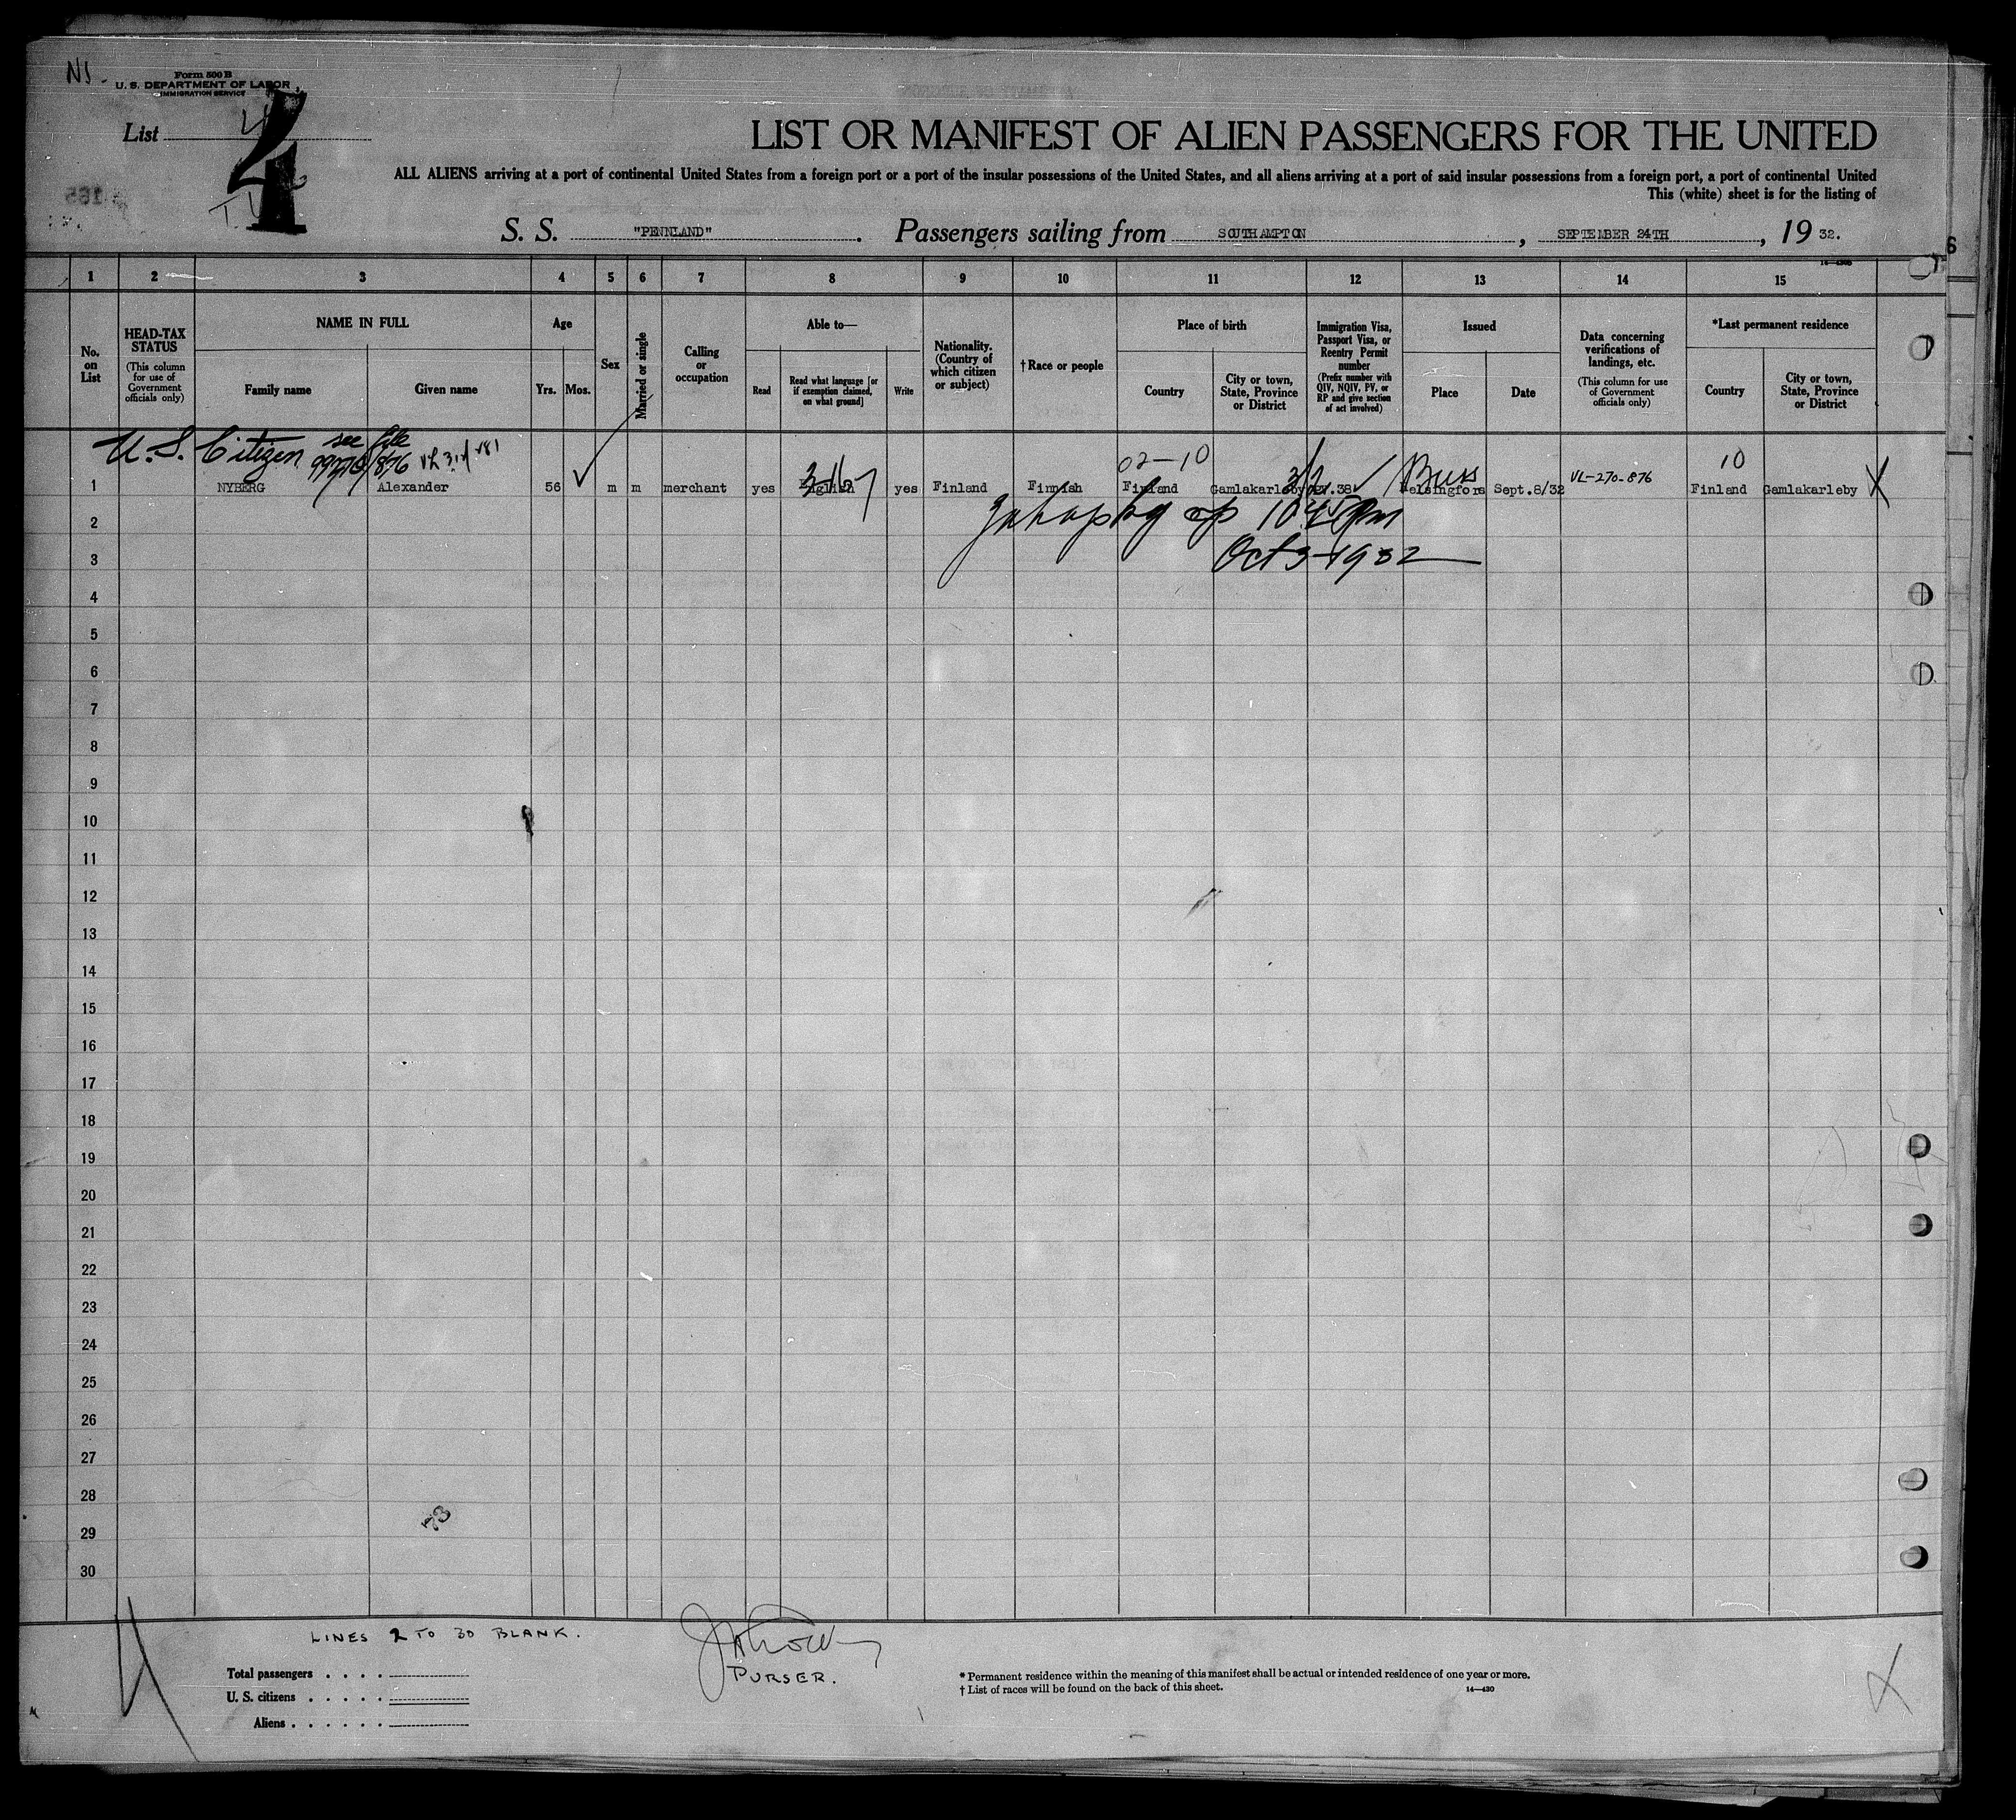 NS.
Form 500 B
U. S. DEPARTMENT OF LABOR
IMMIGRATION SERVICE
List 4
4
165
LIST OR MANIFEST OF ALIEN PASSENGERS FOR THE UNITED
ALL ALIENS arriving at a port of continental United States from a foreign port or a port of the insular possessions of the United States, and all aliens arriving at a port of said insular possessions from a foreign port, a port of continental United
This (white) sheet is for the listing of
S. S. "PENNLAND". Passengers sailing from SOUTHAMPTON, SEPTEMBER 24TH, 19 32.
1 2 3 4 5 6 7 8 9 10 11 12 13 14 15
No. on List
HEAD-TAX STATUS
(This column for use of Government officials only)
NAME IN FULL
Family name Given name
Age
Yrs. Mos.
Sex
Married or single
Calling or occupation
Able to—
Read Read what language [or if exemption claimed, on what ground] Write
Nationality. (Country of which citizen or subject)
† Race or people
Place of birth
Country City or town, State, Province or District
Immigration Visa, Passport Visa, or Reentry Permit number
(Prefix number with QIV, NQIV, PV, or RP and give section of act involved)
Issued
Place Date
Data concerning verifications of landings, etc.
(This column for use of Government officials only)
*Last permanent residence
Country City or town, State, Province or District
U.S. Citizen see file
02-10 10
1 NYBERG Alexander 56 m m merchant yes English yes Finland Finnish Finland Gamlakarleby Helsingfors Sept.8/32 VL-270-876 Finland Gamlakarleby X
2
Oct 3-1932
3
4
5
6
7
8
9
10
11
12
13
14
15
16
17
18
19
20
21
22
23
24
25
26
27
28
73
29
30
LINES 2 TO 30 BLANK.
PURSER.
Total passengers
U. S. citizens
Aliens
* Permanent residence within the meaning of this manifest shall be actual or intended residence of one year or more.
† List of races will be found on the back of this sheet.
14—430